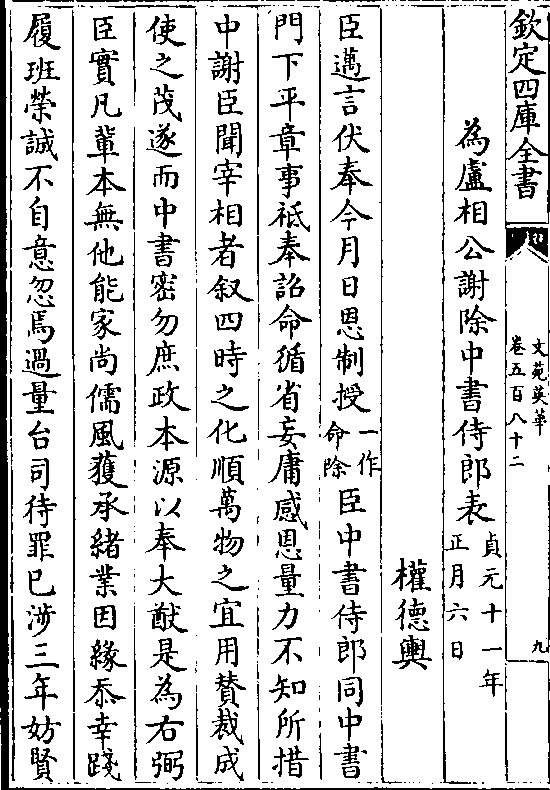 欽定四庫全書
文苑英華
卷五百八十二
九
為盧相公謝除中書侍郎表貞元十一年
正月六日
權德輿
臣邁言伏奉今月日恩制授一作
命除臣中書侍郎同中書
門下平章事祗奉詔命循省妄庸感恩量力不知所措
中謝臣聞宰相者叙四時之化順萬物之宜用賛裁成
使之茂遂而中書密勿庶政本源以奉大猷是為右弼
臣實凡輩本無他能家尚儒風獲承緒業因緣忝幸踐
履班榮誠不自意忽焉過量台司待罪已涉三年妨賢